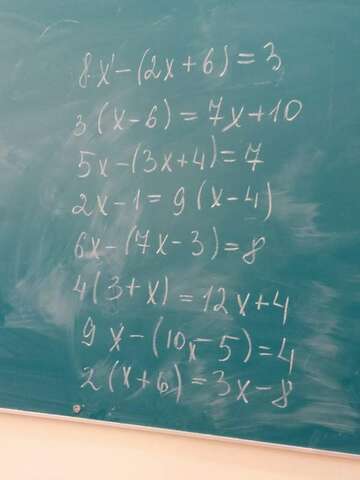 8x-(2x+6)=3
3(x-6)=7x+10
5x-(3x+4)=7
2x-1=9(x-4)
6x-(7x-3)=8
4(3+x)=12x+4
9x-(10x-5)=4
2(x+6)=3x-8